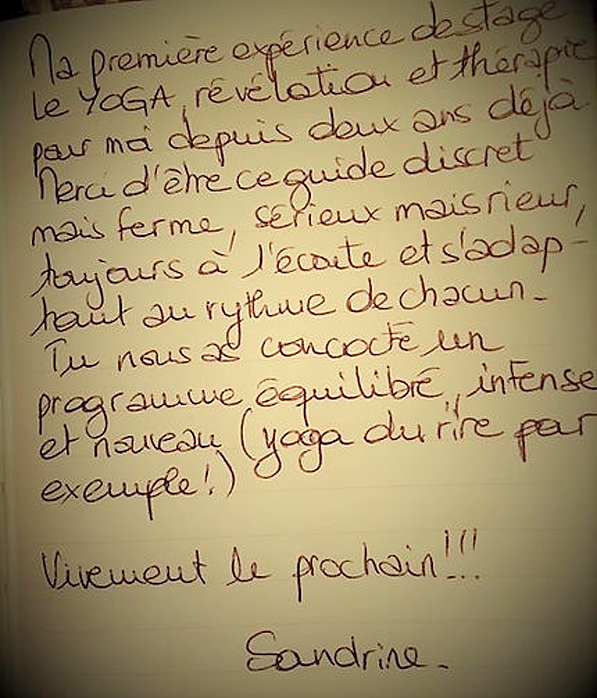 Ma première expérience de stage
Le YOGA, révélation et thérapie
pour moi depuis deux ans déjà.
Merci d'être ce guide discret
mais ferme, sérieux mais rieur,
toujours à l'écoute et s'adap-
tant au rythme de chacun_
Tu nous as concocté un
programme équilibré, intense
et nouveau (yoga du rire par
exemple!)
Vivement le prochain!!!
Sandrine_